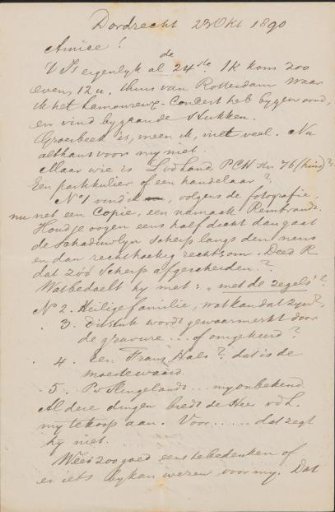 Dordrecht 23 Okt 1890
Amice!
't Is eigenlijk al de 24ste Ik kom zoo
even, 12 u, thuis van Rotterdam waar
ik het Lamoureux-Concert heb bygewoond,
en vind bygaande stukken.
is, meen ik, niet veel. Nu
althans voor my niet.
Maar wie is P.C.H. str 76
Een particulier of een handelaar?
No 1 vind ik, volgens de fotografie,
nu net een Copie, een namaak Rembrandt.
Houd je oogen eens half dicht dan gaat
de schaduwlyn scherp langs den neus
en dan rechthoekig rechtsom. Deed R
dat zóó scherp afgescheiden?
Wat bedoelt hy met: "met de zegels"?
No 2. Heilige familie, wat kan dat zyn?
" 3. dit stuk wordt gewaarmerkt door
de gravure ... of omgekeerd?
" 4. Een Frans Hals? dat is de
moeite waard
" 5. P. v. Slingelandt ... my onbekend
Al deze dingen biedt de Heer v d L.
my te koop aan. Voor ...... dat zegt
hy niet.
Wees zoo goed eens te bedenken of
er iets by kan wezen voor my. Dat